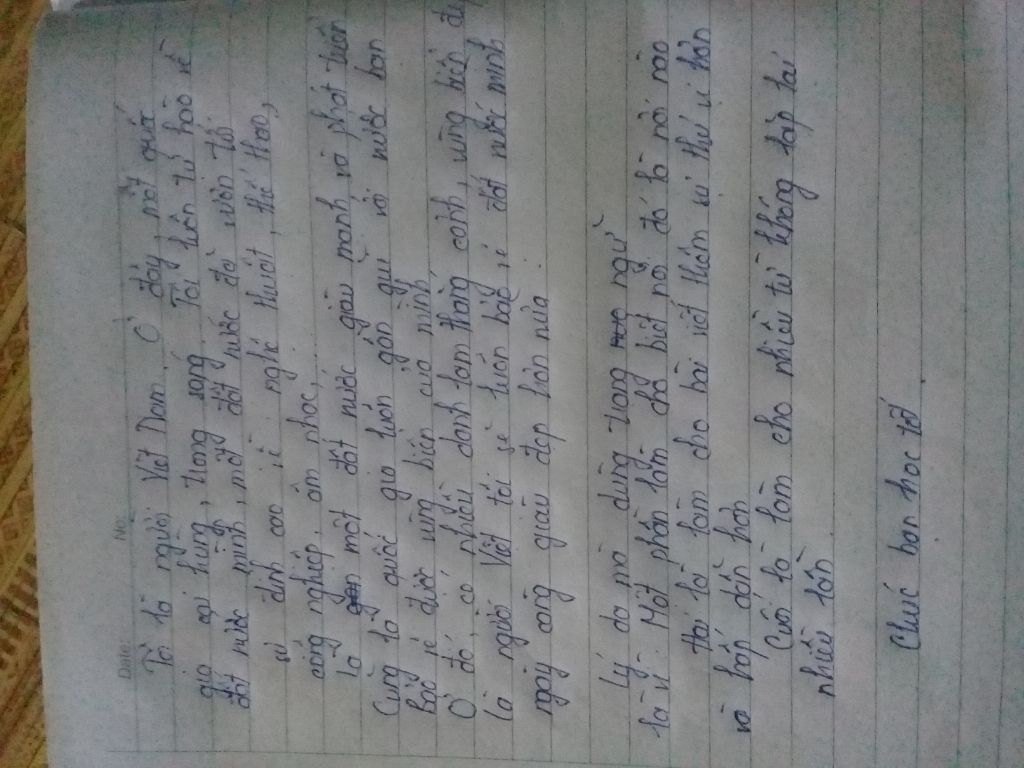 Date: No:
Tôi là người Việt Nam. Ở đây, một quốc
gia oai hùng, trang sang. Tôi luôn tự hào về
đất nước mình, một đất nước đã vươn tới
vị đỉnh cao về nghệ thuật, thể thao,
công nghiệp, âm nhạc,
là một đất nước giàu mạnh và phát triển
Cũng là quốc gia luôn gần gũi với nước bạn
Bảo vệ được vùng biển của mình
Ở đó, có nhiều danh lam thắng cảnh, vùng biển đẹp
Là người Việt tôi sẽ luôn bảo vệ đất nước mình
ngày càng giàu đẹp hơn nữa.
Lý do mà dùng trạng ngữ
là vì: Một phần làm cho biết nơi đó là nơi nào
Hai là làm cho bài viết thêm sự thú vị hơn
và hấp dẫn hơn
Cuối là làm cho nhiều từ không lặp lại
nhiều lần.
Chúc bạn học tố